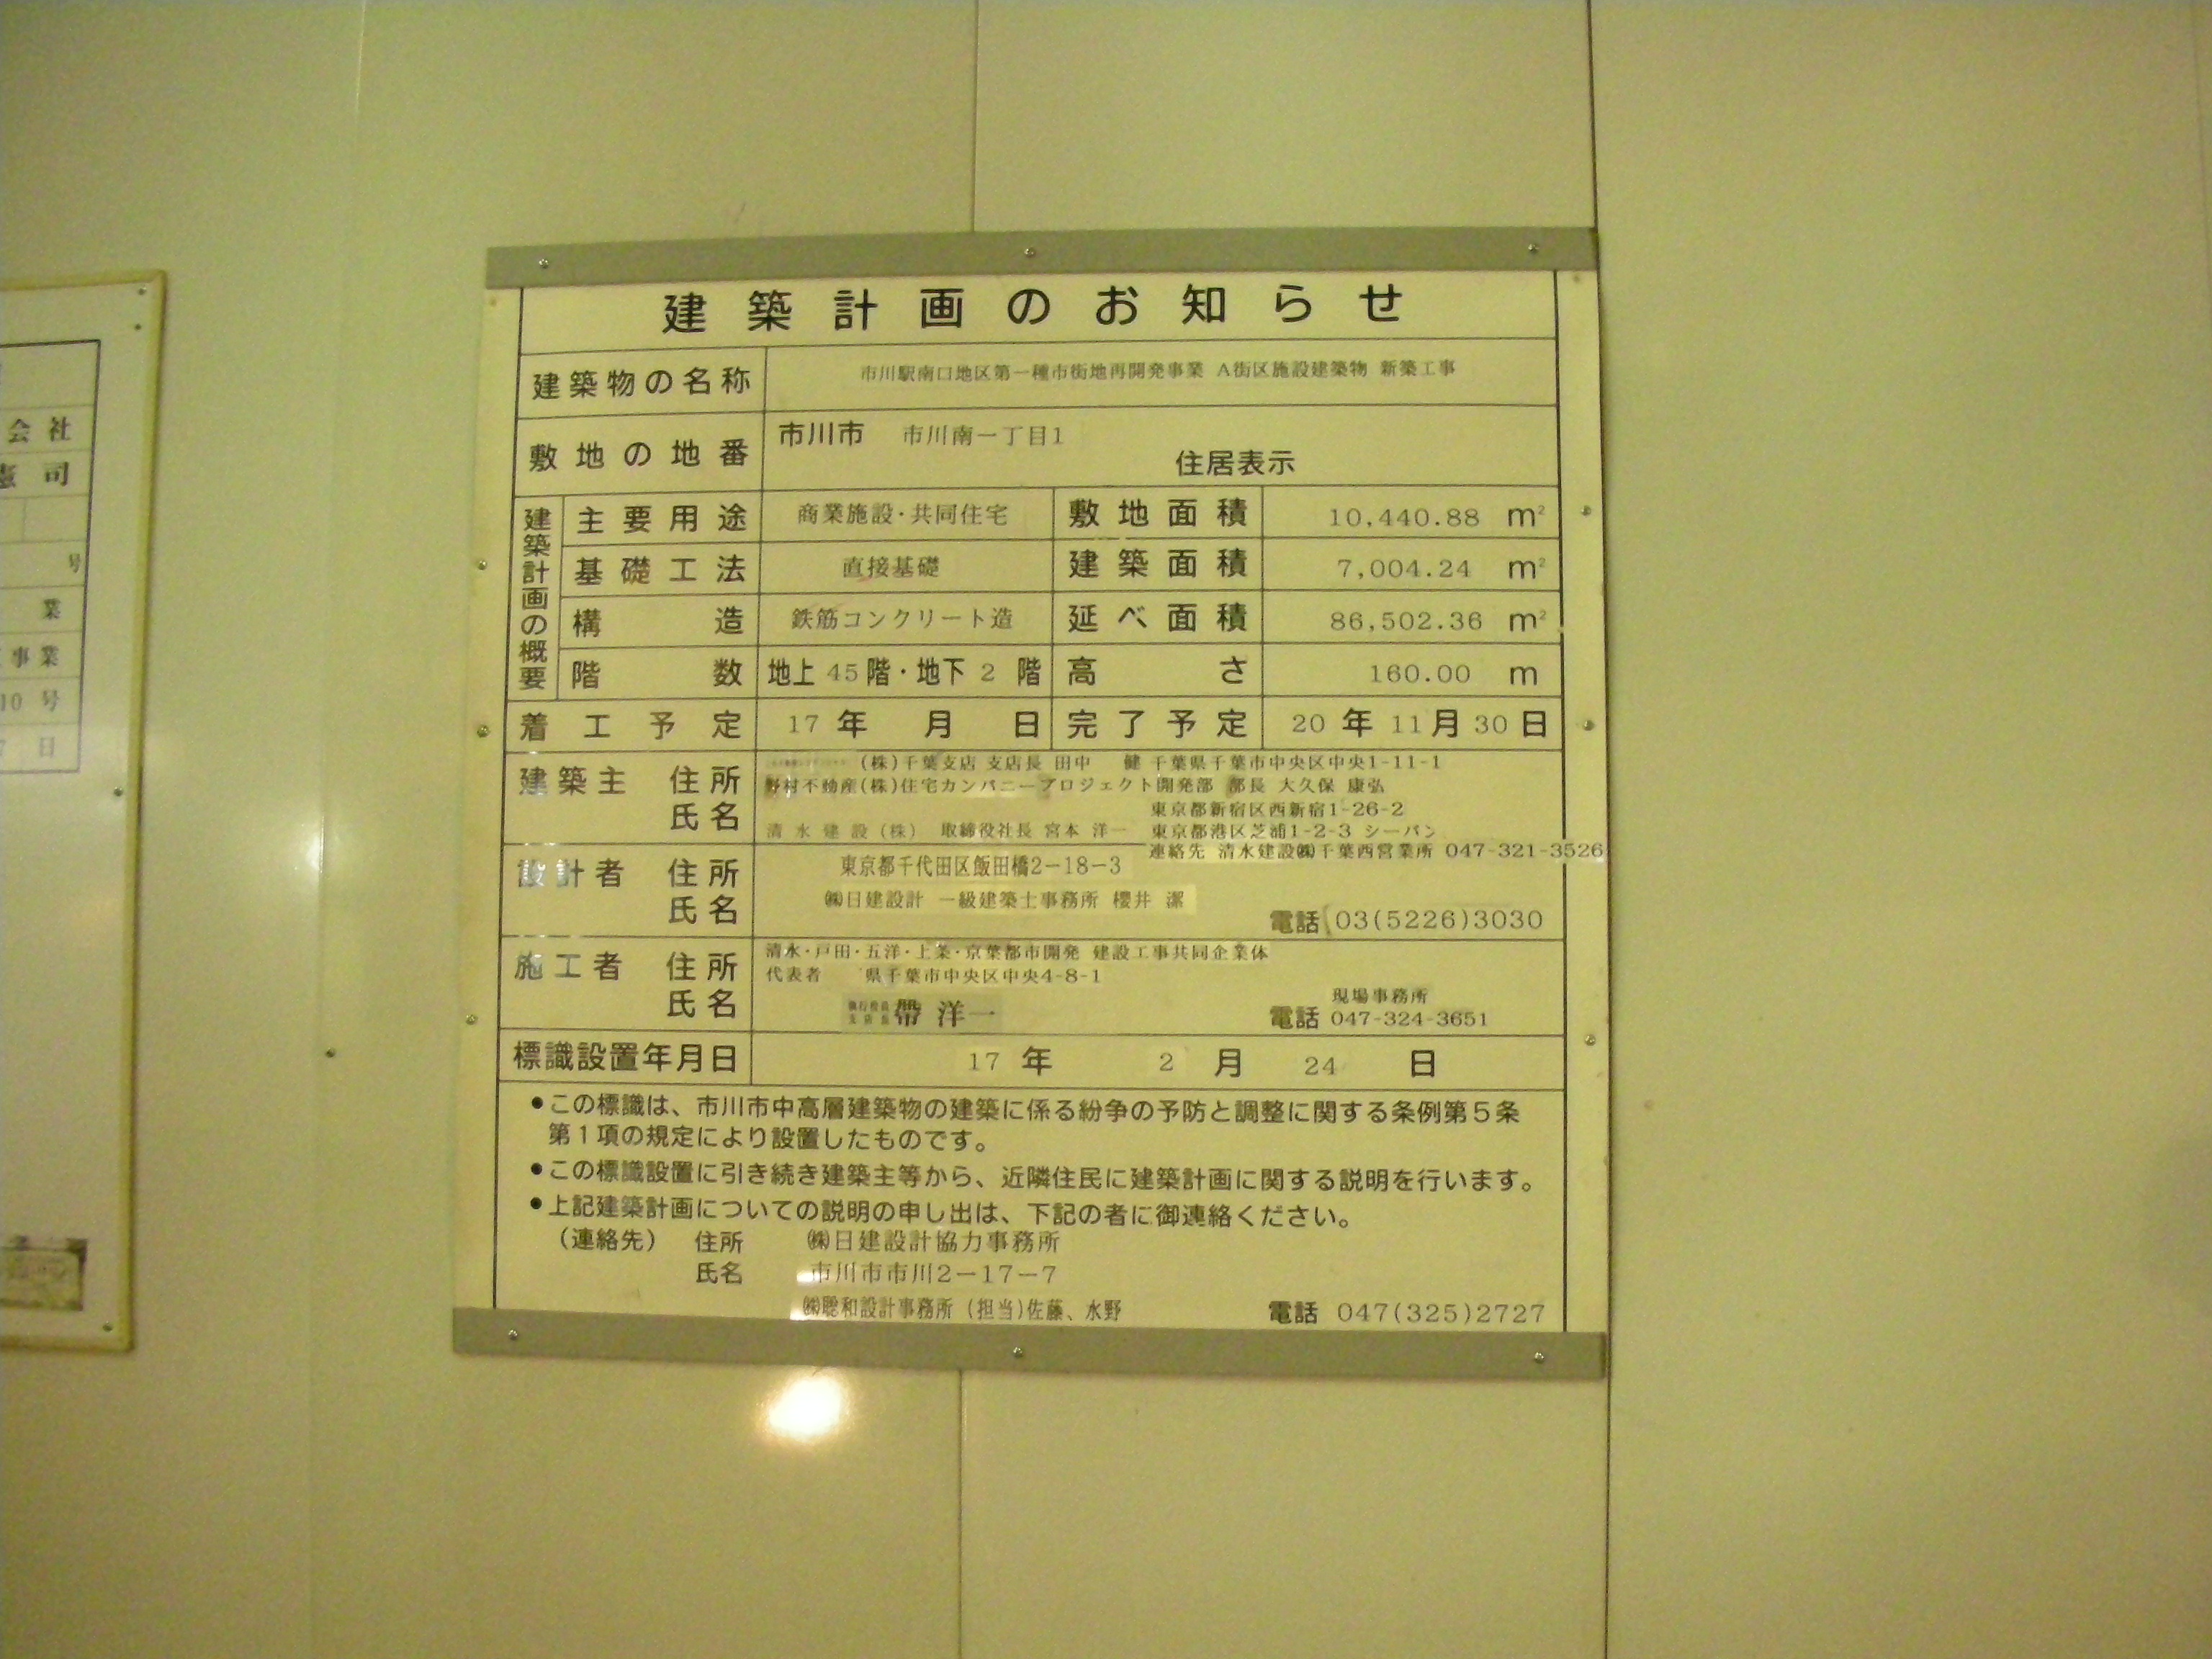 建築計画のお知らせ
建築物の名称 市川駅南口地区第一種市街地再開発事業 A街区施設建築物 新築工事
敷地の地番 市川市 市川南一丁目1
住居表示
建築計画の概要
主要用途 商業施設・共同住宅 敷地面積 10,440.88 m²
基礎工法 直接基礎 建築面積 7,004.24 m²
構造 鉄筋コンクリート造 延べ面積 86,502.36 m²
階数 地上 45 階・地下 2 階 高さ 160.00 m
着工予定 17 年 月 日 完了予定 20 年 11 月 30 日
建築主 住所 氏名
(株)千葉支店 支店長 田中 健 千葉県千葉市中央区中央1-11-1
野村不動産(株)住宅カンパニープロジェクト開発部 部長 大久保 康弘
東京都新宿区西新宿1-26-2
清水建設(株) 取締役社長 宮本 洋一 東京都港区芝浦1-2-3 シーバン
連絡先 清水建設㈱千葉西営業所 047-321-3526
設計者 住所 氏名
東京都千代田区飯田橋2-18-3
㈱日建設計 一級建築士事務所 櫻井 潔
電話 03(5226)3030
施工者 住所 氏名
清水・戸田・五洋・上条・京葉都市開発 建設工事共同企業体
代表者 県千葉市中央区中央4-8-1
現場事務所
帶 洋一 電話 047-324-3651
標識設置年月日 17 年 2 月 24 日
●この標識は、市川市中高層建築物の建築に係る紛争の予防と調整に関する条例第5条
第1項の規定により設置したものです。
●この標識設置に引き続き建築主等から、近隣住民に建築計画に関する説明を行います。
●上記建築計画についての説明の申し出は、下記の者に御連絡ください。
(連絡先) 住所 ㈱日建設計協力事務所
氏名 市川市市川2-17-7
㈱聡和設計事務所 (担当)佐藤、水野 電話 047(325)2727
会社
司
号
業
事業
10 号
日